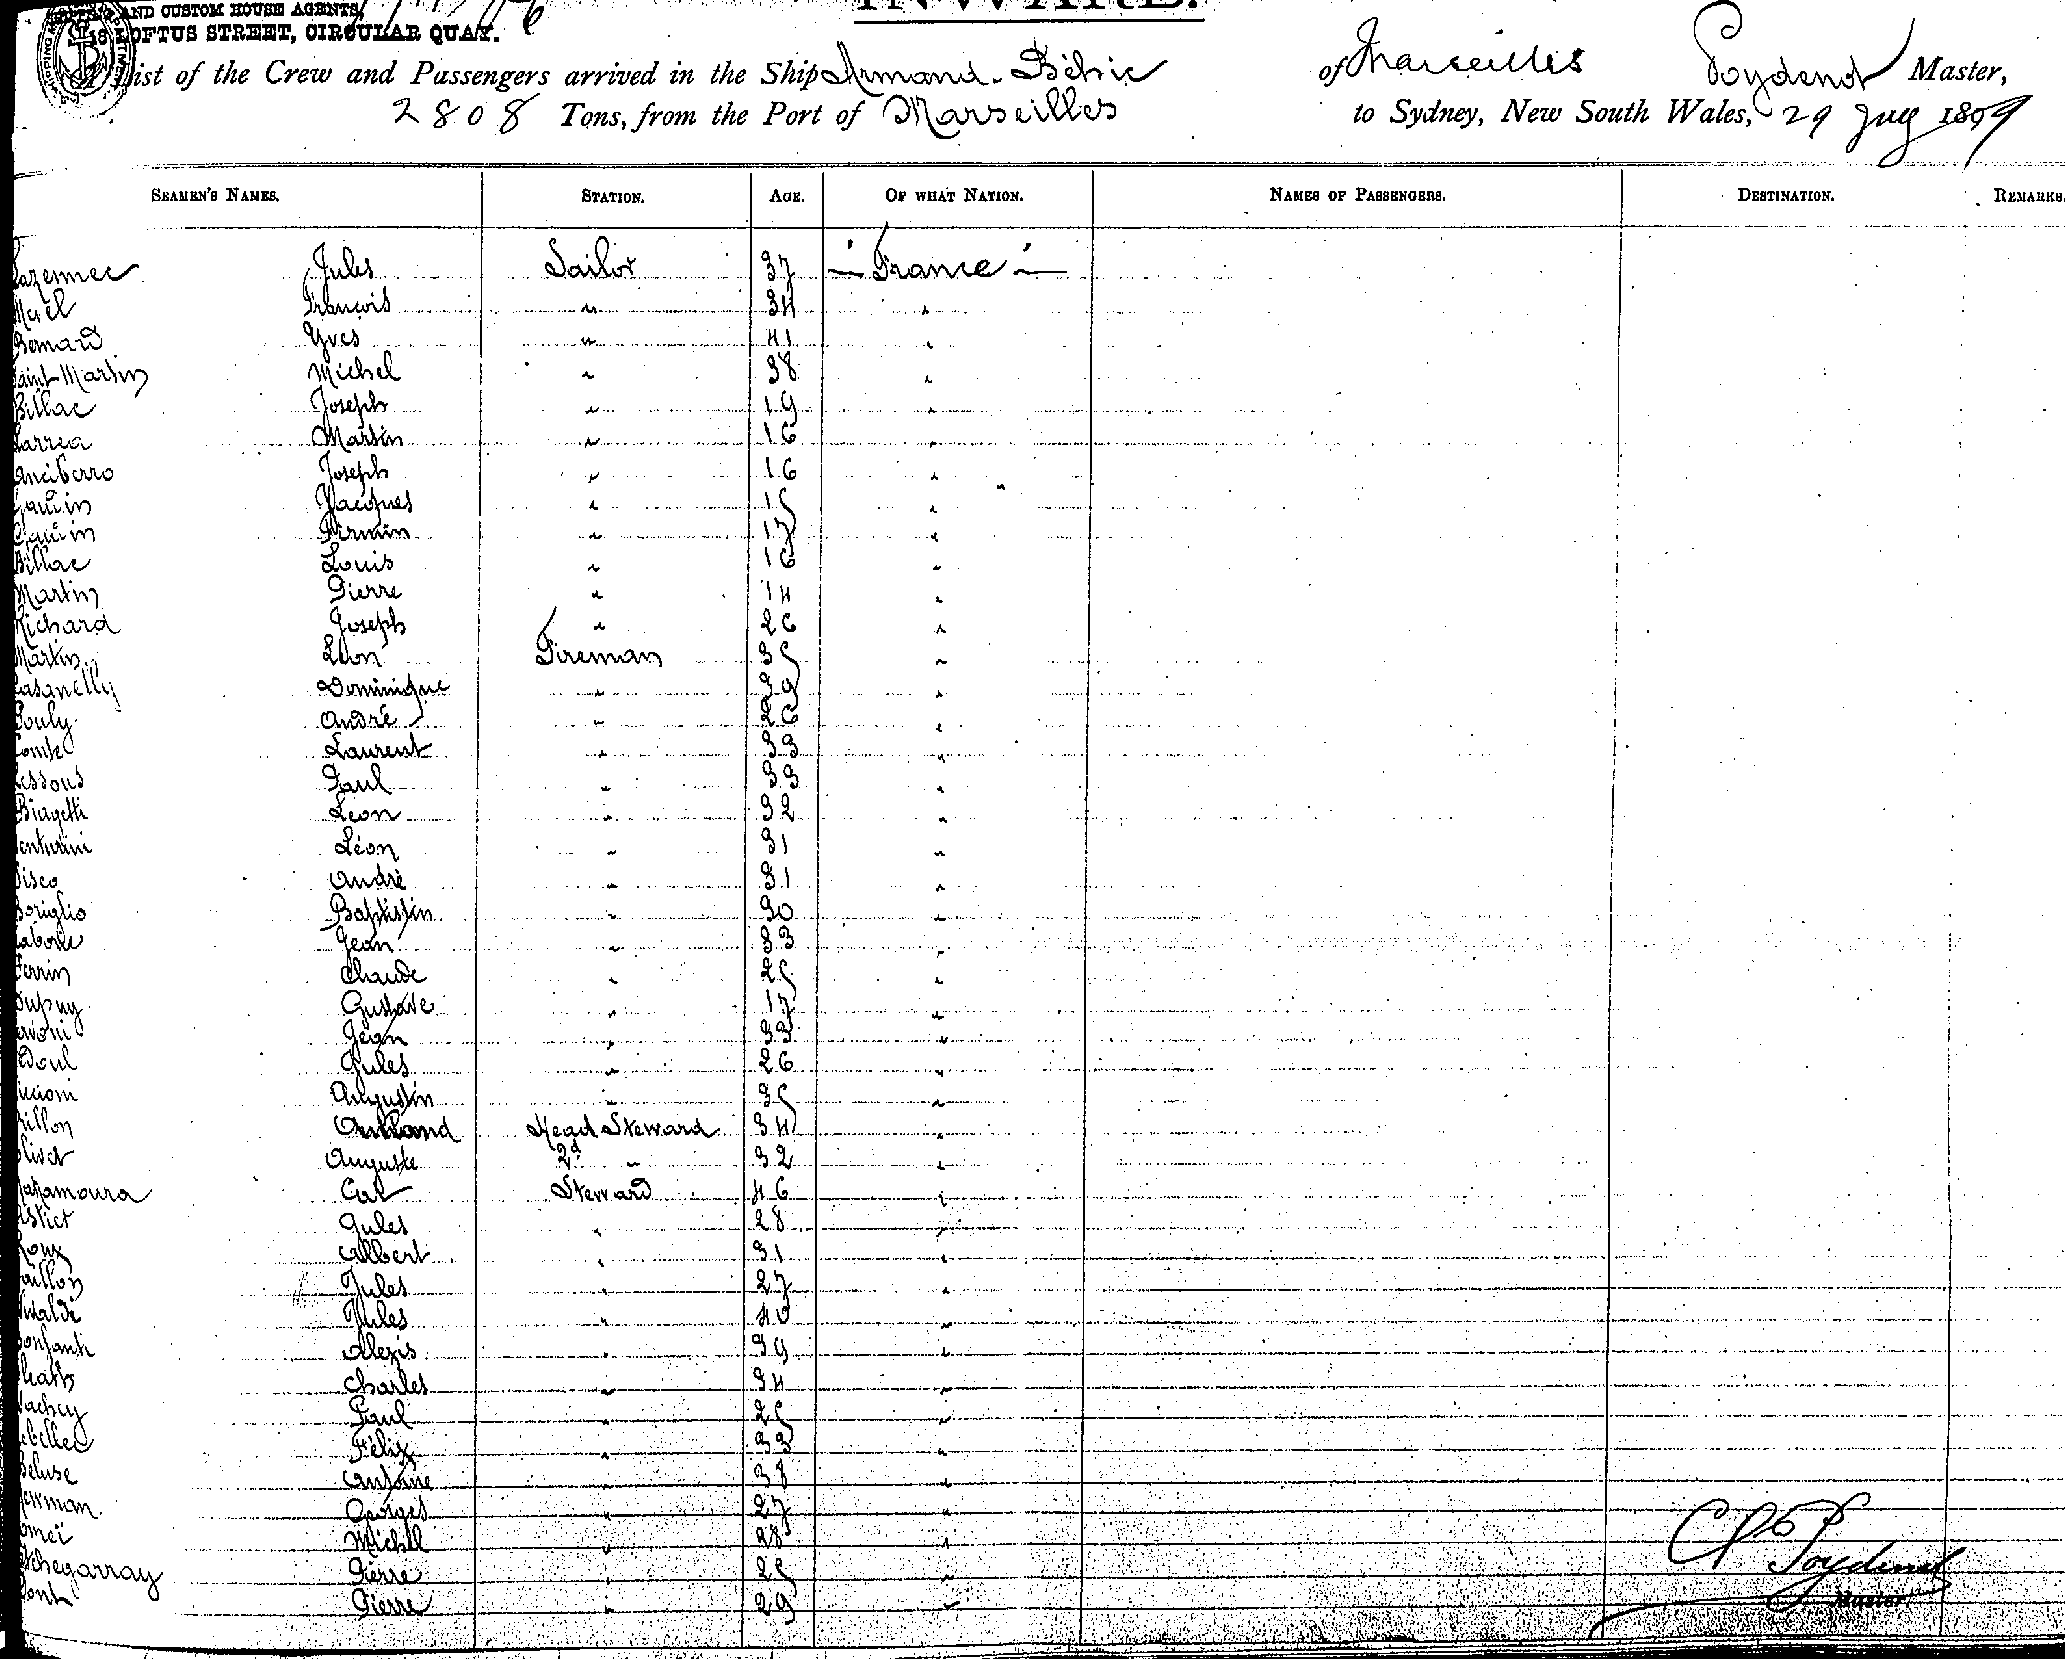 AND CUSTOM HOUSE AGENTS,
LOFTUS STREET, CIRCULAR QUAY.
INWARD.
List of the Crew and Passengers arrived in the Ship Armand-Béhic of Marseilles Poydenot Master,
2808 Tons, from the Port of Marseilles to Sydney, New South Wales, 29 1899
SEAMEN'S NAMES. STATION. AGE. OF WHAT NATION. NAMES OF PASSENGERS. DESTINATION. REMARKS.
Jules Sailor 37 France
François " 34 "
Bernard Yves " 41 "
Saint-Martin Michel " 38 "
Billac Joseph " 19 "
Larrea Martin " 16 "
Joseph " 16 "
Jacques " 15 "
Firmin " 17 "
Billac Louis " 16 "
Martin Pierre " 14 "
Richard Joseph " 26 "
Martin Léon Fireman 35 "
Casanelly Dominique " 39 "
Pouly André " 26 "
Comte Laurent " 33 "
Paul " 33 "
Biagetti Léon " 32 "
Venturini Léon " 31 "
André " 31 "
Boriglio Baptistin " 30 "
Laborde Jean " 33 "
Perrin Claude " 25 "
Dupuy Gustave " 17 "
Jean " 33 "
Jules " 26 "
Augustin " 35 "
Head Steward 34 "
Auguste 2d " 32 "
Nakamoura Steward 46 "
Jules " 28 "
Roux Albert " 31 "
Jules " 27 "
Vivaldi Jules " 40 "
Bonfanti Alexis " 39 "
Charles " 34 "
Vachey Paul " 25 "
Félix " 33 "
Antoine " 38 "
Georges " 27 "
Michel " 28 "
Etchegarray Pierre " 25 "
Pierre " 29 "
Poydenot
Master